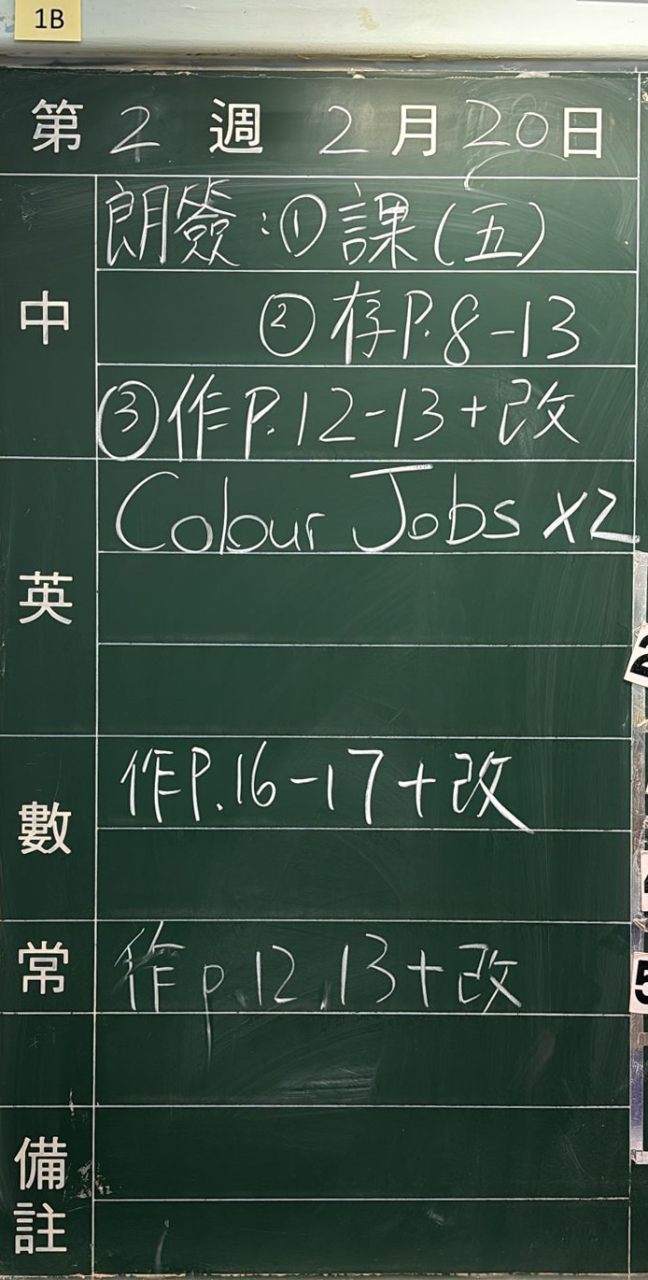 1B
第2週 2月20日
中
朗簽:①課(五)
②存P.8-13
③作P.12-13+改
英
Colour Jobs X2
數
作P.16-17+改
常
作p.12,13+改
備註
2
5